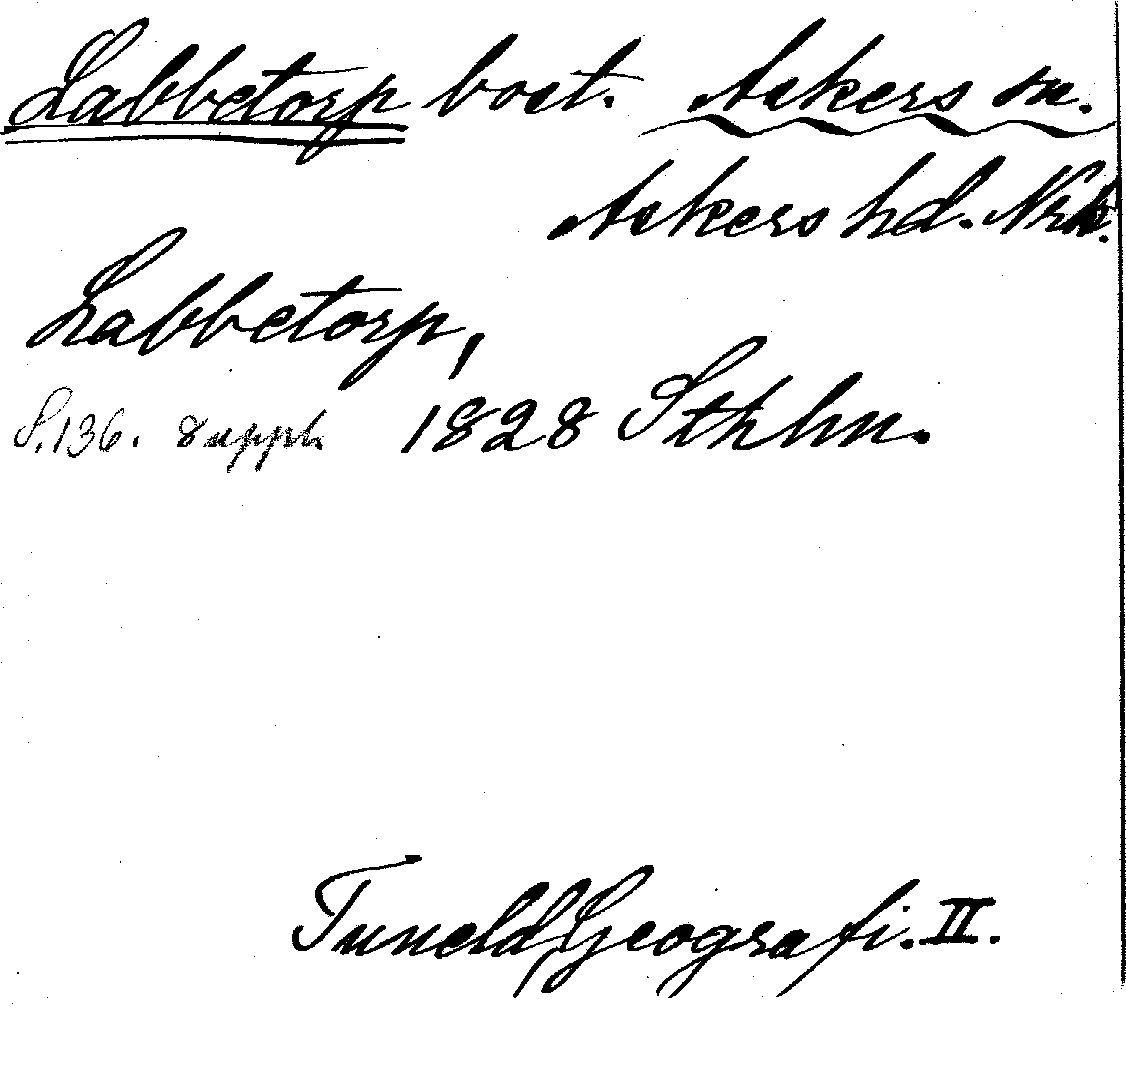 Labbetorp bost. Askers sn.
Askers hd. Nrk.
Labbetorp,
S. 136. Suppl. 1828 Sthlm.
Tuneld, Geografi. II.